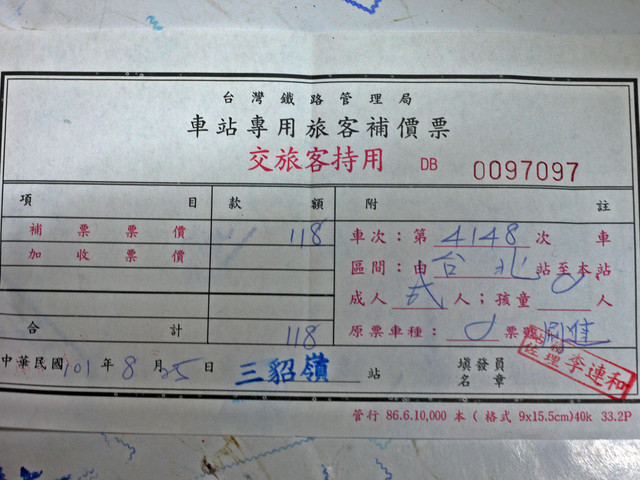 台灣鐵路管理局
車站專用旅客補價票
交旅客持用 DB 0097097
項目 款額 附註
補票票價 118 車次：第4148次車
加收票價 區間：由台北站至本站
成人弍人；孩童 人
合計 118 原票車種： 票號
中華民國101年8月25日 三貂嶺站 填發員名章 李連和
管行 86.6.10,000 本 ( 格式 9x15.5cm)40k 33.2P